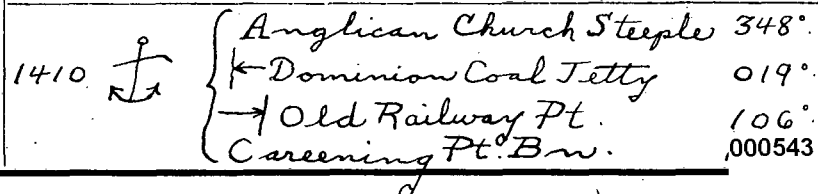 Anglican Church Steeple 348°.
1410 ⚓ |← Dominion Coal Jetty 019°.
→| Old Railway Pt. 106°.
Careening Pt. Bn. 000543